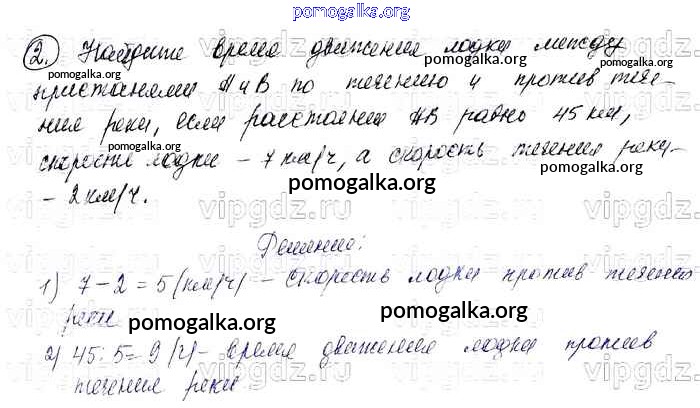 pomogalka.org
2. Найдите время движения лодки между
pomogalka.org pomogalka.org
пристанями А и В по течению и против тече-
ния реки, если расстояния АВ равно 45 км,
pomogalka.org
скорость лодки - 7 км/ч, а скорость течения реки -
pomogalka.org
- 2 км/ч.
vipgdz.ru vipgdz.ru vipgdz.ru
Решение:
1) 7 - 2 = 5 (км/ч) - скорость лодки против течения
реки
pomogalka.org pomogalka.org
2) 45 : 5 = 9 (ч) - время движения лодки против
течения реки